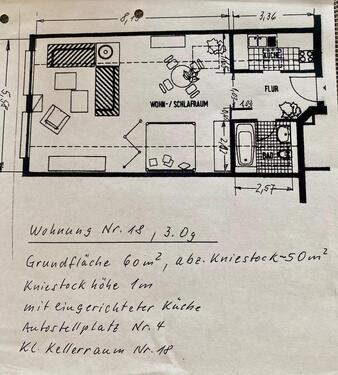 8,19
3,36
5,58
KÜCHE
WOHN-/SCHLAFRAUM
FLUR
BAD
2,57
Wohnung Nr. 18, 3. Og
Grundfläche 60 m², abz. Kniestock ~50 m²
Kniestock höhe 1m
mit eingerichteter Küche
Autostellplatz Nr. 4
Kl. Kellerraum Nr. 18